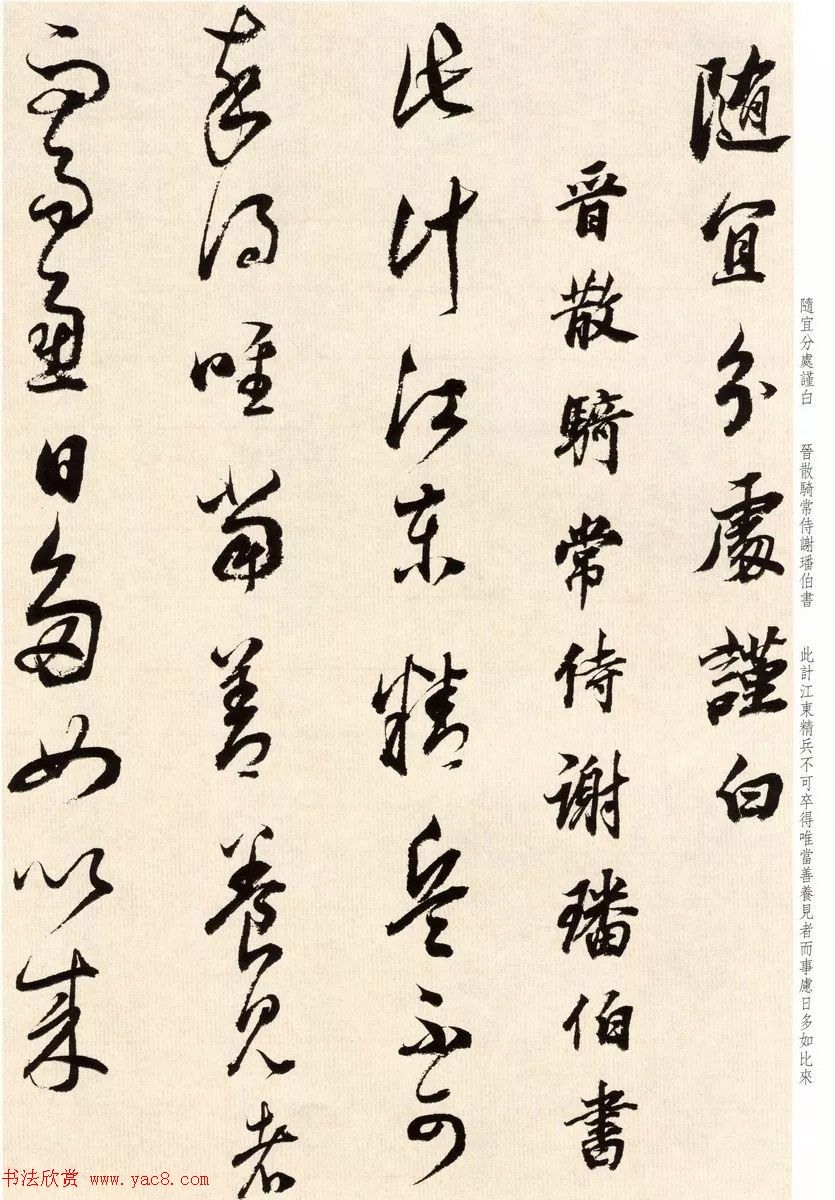 随宜分處謹白
晋散騎常侍謝璠伯書
此计江東精兵不可
卒得唯當善養見者
而事慮日多如以来
隨宜分處謹白 晉散騎常侍謝璠伯書 此計江東精兵不可卒得唯當善養見者而事慮日多如比來
书法欣赏 www.yac8.com